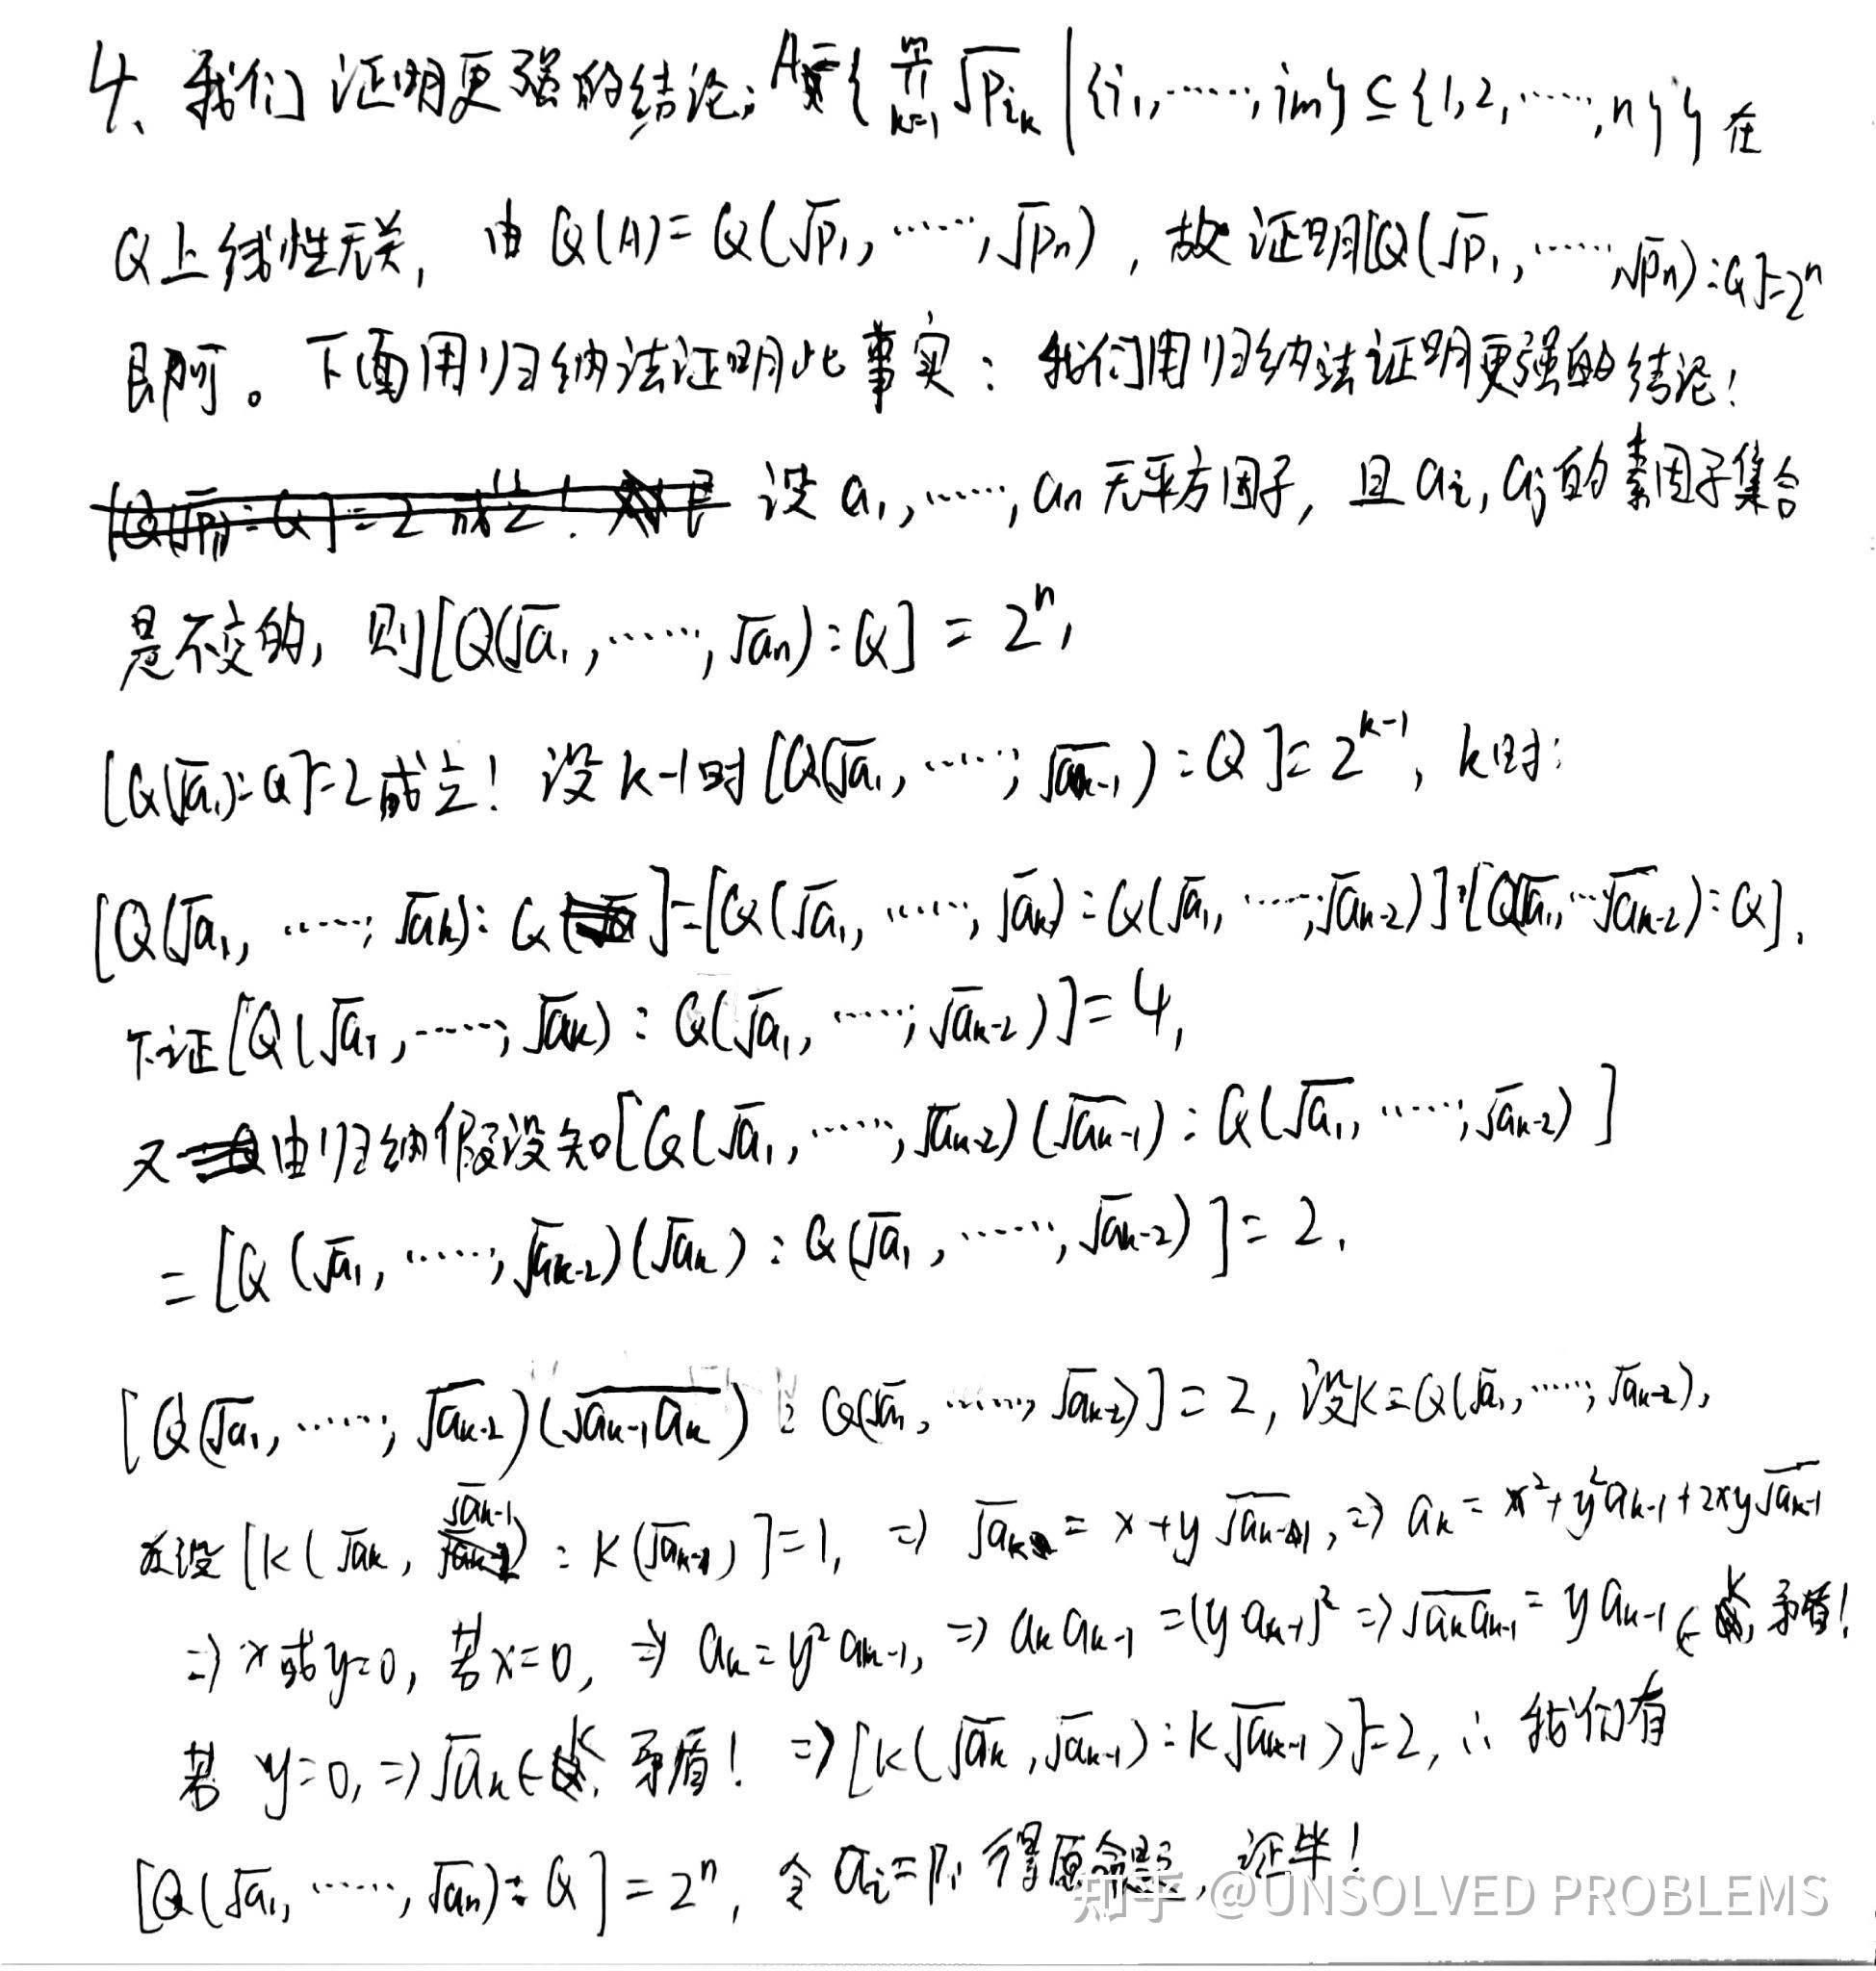 4、我们证明更强的结论: A={∏_{k=1}^{m} √p_{i_k} | {i₁,……,i_m} ⊆ {1,2,……,n}} 在
Q上线性无关, 由 Q(A)=Q(√p₁,……,√pₙ), 故证明[Q(√p₁,……,√pₙ):Q]=2ⁿ
即可。下面用归纳法证明此事实: 我们用归纳法证明更强的结论!
设 a₁,……,aₙ 无平方因子, 且 aᵢ,aⱼ的素因子集合
是不交的, 则[Q(√a₁,……,√aₙ):Q]=2ⁿ,
[Q(√a₁):Q]=2成立! 设 k-1时 [Q(√a₁,……,√a_{k-1}):Q]=2^{k-1}, k时:
[Q(√a₁,……,√a_k):Q]=[Q(√a₁,……,√a_k):Q(√a₁,……,√a_{k-2})]·[Q(√a₁,…√a_{k-2}):Q].
下证[Q(√a₁,……,√a_k):Q(√a₁,……,√a_{k-2})]=4,
又由归纳假设知[Q(√a₁,……,√a_{k-2})(√a_{k-1}):Q(√a₁,……,√a_{k-2})]
=[Q(√a₁,……,√a_{k-2})(√a_k):Q(√a₁,……,√a_{k-2})]=2.
[Q(√a₁,……,√a_{k-2})(√a_{k-1}a_k):Q(√a₁,……,√a_{k-2})]=2, 设K=Q(√a₁,……,√a_{k-2}),
设[K(√a_k,√a_{k-1}):K(√a_{k-1})]=1, ⇒ √a_k=x+y√a_{k-1}, ⇒ a_k=x²+y²a_{k-1}+2xy√a_{k-1}
⇒ x或y=0, 若x=0, ⇒ a_k=y²a_{k-1}, ⇒ a_k a_{k-1}=(y a_{k-1})² ⇒ √a_k a_{k-1}=y a_{k-1}∈K, 矛盾!
若 y=0, ⇒ √a_k∈K, 矛盾! ⇒ [K(√a_k,√a_{k-1}):K√a_{k-1})]=2, ∴ 我们有
[Q(√a₁,……,√aₙ):Q]=2ⁿ, 令 aᵢ=pᵢ 得原命题, 证毕!
知乎 @UNSOLVED PROBLEMS